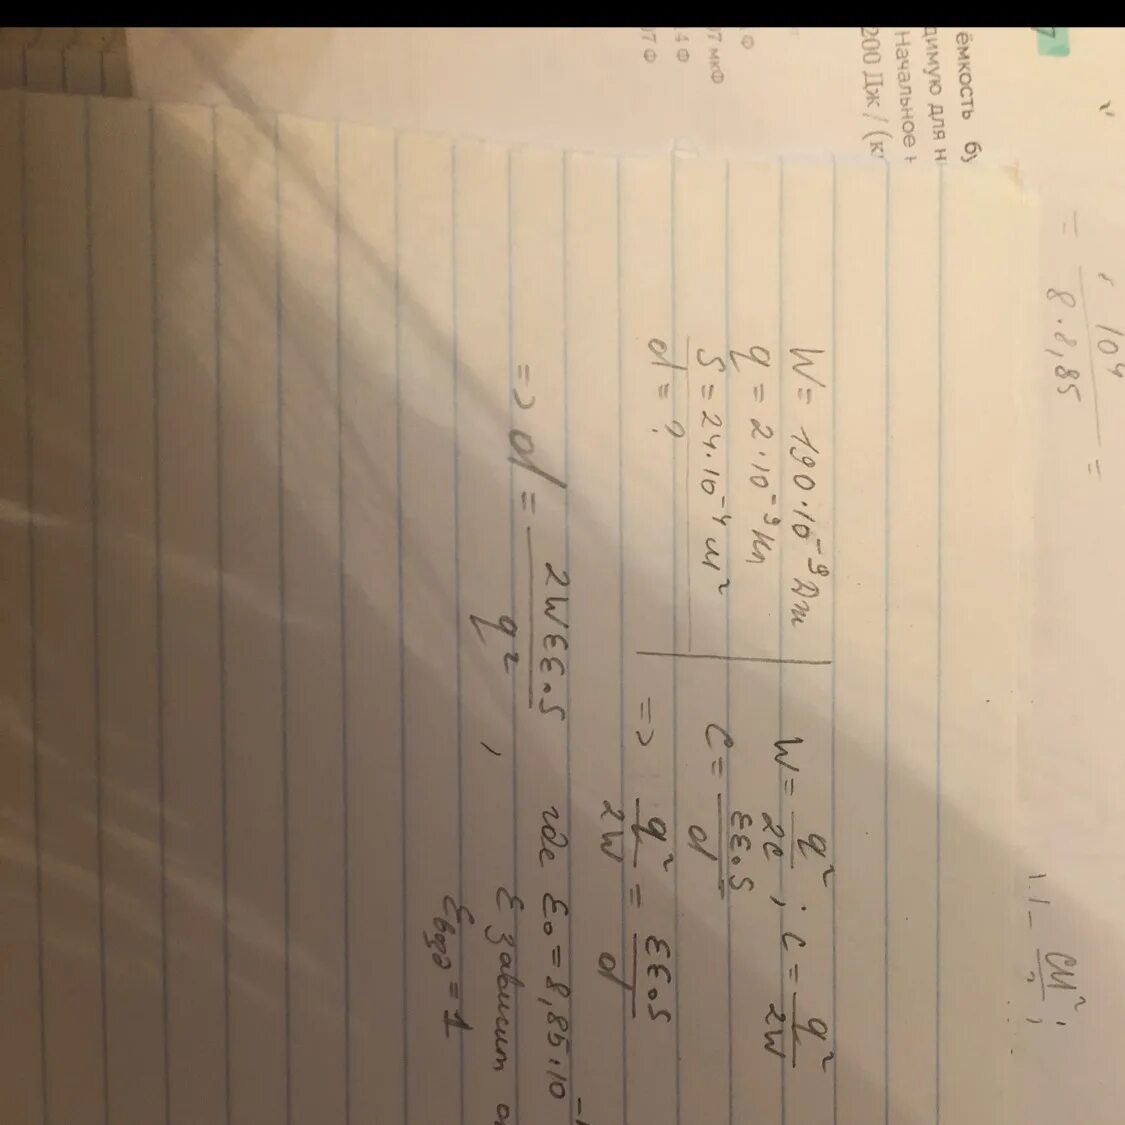 7
ёмкость бу
димую для н
Начальное н
200 Дж / (к
Ф
07 мкФ
4 Ф
07 Ф
10⁴
= ——— =
8·8,85
см²;
W = 190·10⁻⁹ Дж
q = 2·10⁻⁹ Кл
S = 24·10⁻⁴ м²
d = ?
W = q²/2C ; C = q²/2W
C = εε₀S/d
=> q²/2W = εε₀S/d
=> d = 2Wεε₀S/q² , где ε₀ = 8,85·10⁻¹
ε зависит о
ε возд = 1